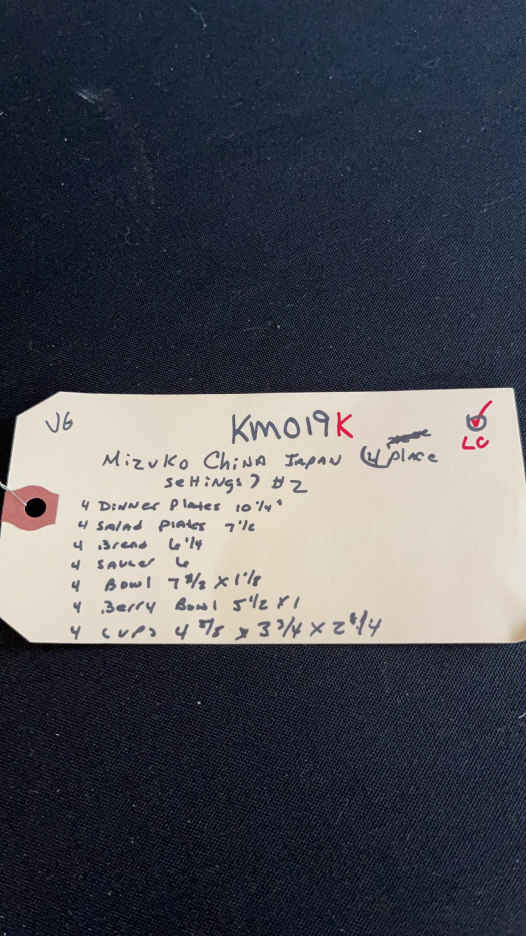 V6
KM019K
LC
Mizuko China Japan (4 place
settings) #2
4 Dinner Plates 10 1/4"
4 Salad Plates 7
4 Bread 6 1/4
4 Saucer 6
4 Bowl 7 1/2 x 1 1/8
4 Berry Bowl 5 1/2 x 1
4 Cups 4 5/8 x 3 3/4 x 2